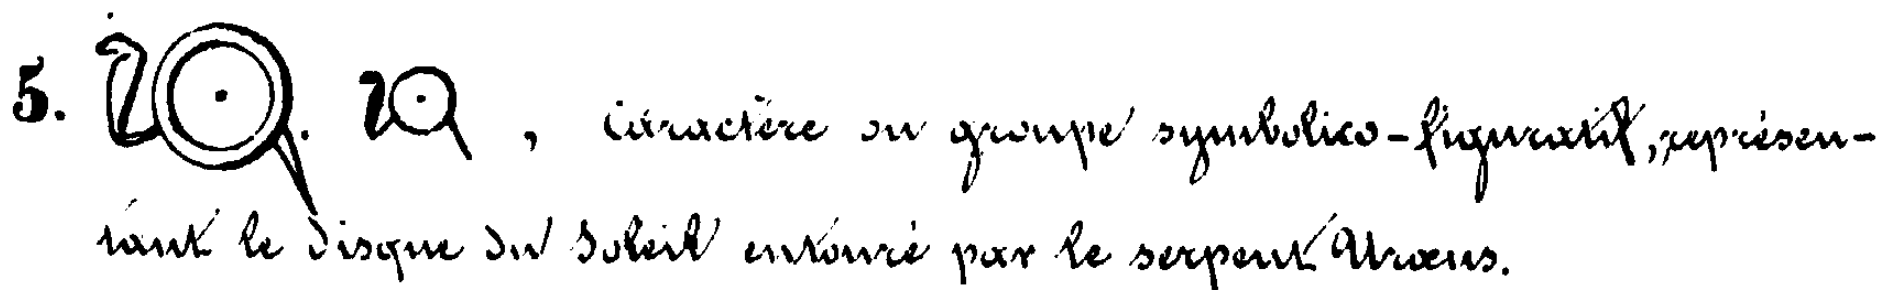 5. , caractère ou groupe symbolico-figuratif, représen-
tant le disque du Soleil entouré par le serpent Uraeus.